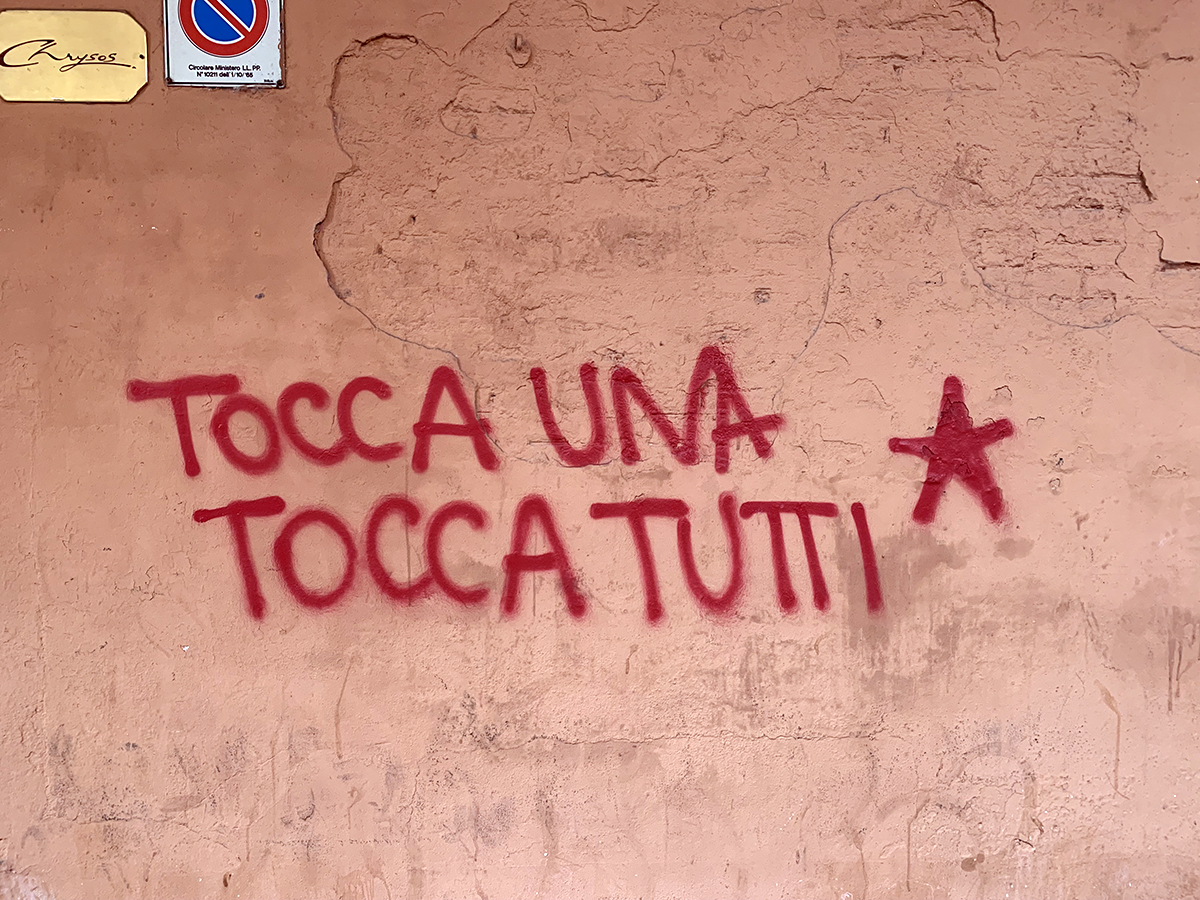 Chrysos
Circolare Ministero LL. PP.
N° 10211 dell' 1/10/'65
TOCCA UNA
TOCCA TUTTI